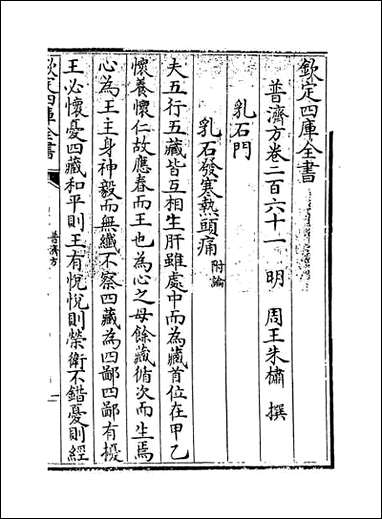 欽定四庫全書
普濟方卷二百六十一 明 周王朱橚 撰
乳石門
乳石發寒熱頭痛 附論
夫五行五藏皆互相生肝雖處中而為藏首位在甲乙
懷養懷仁故應春而王也為心之母餘藏循次而生焉
心為王主身神毅而無纖不察四藏為四鄙四鄙有撥
王必懷憂四藏和平則王有悅悅則榮衛不錯憂則經
欽定四庫全書
普濟方
一